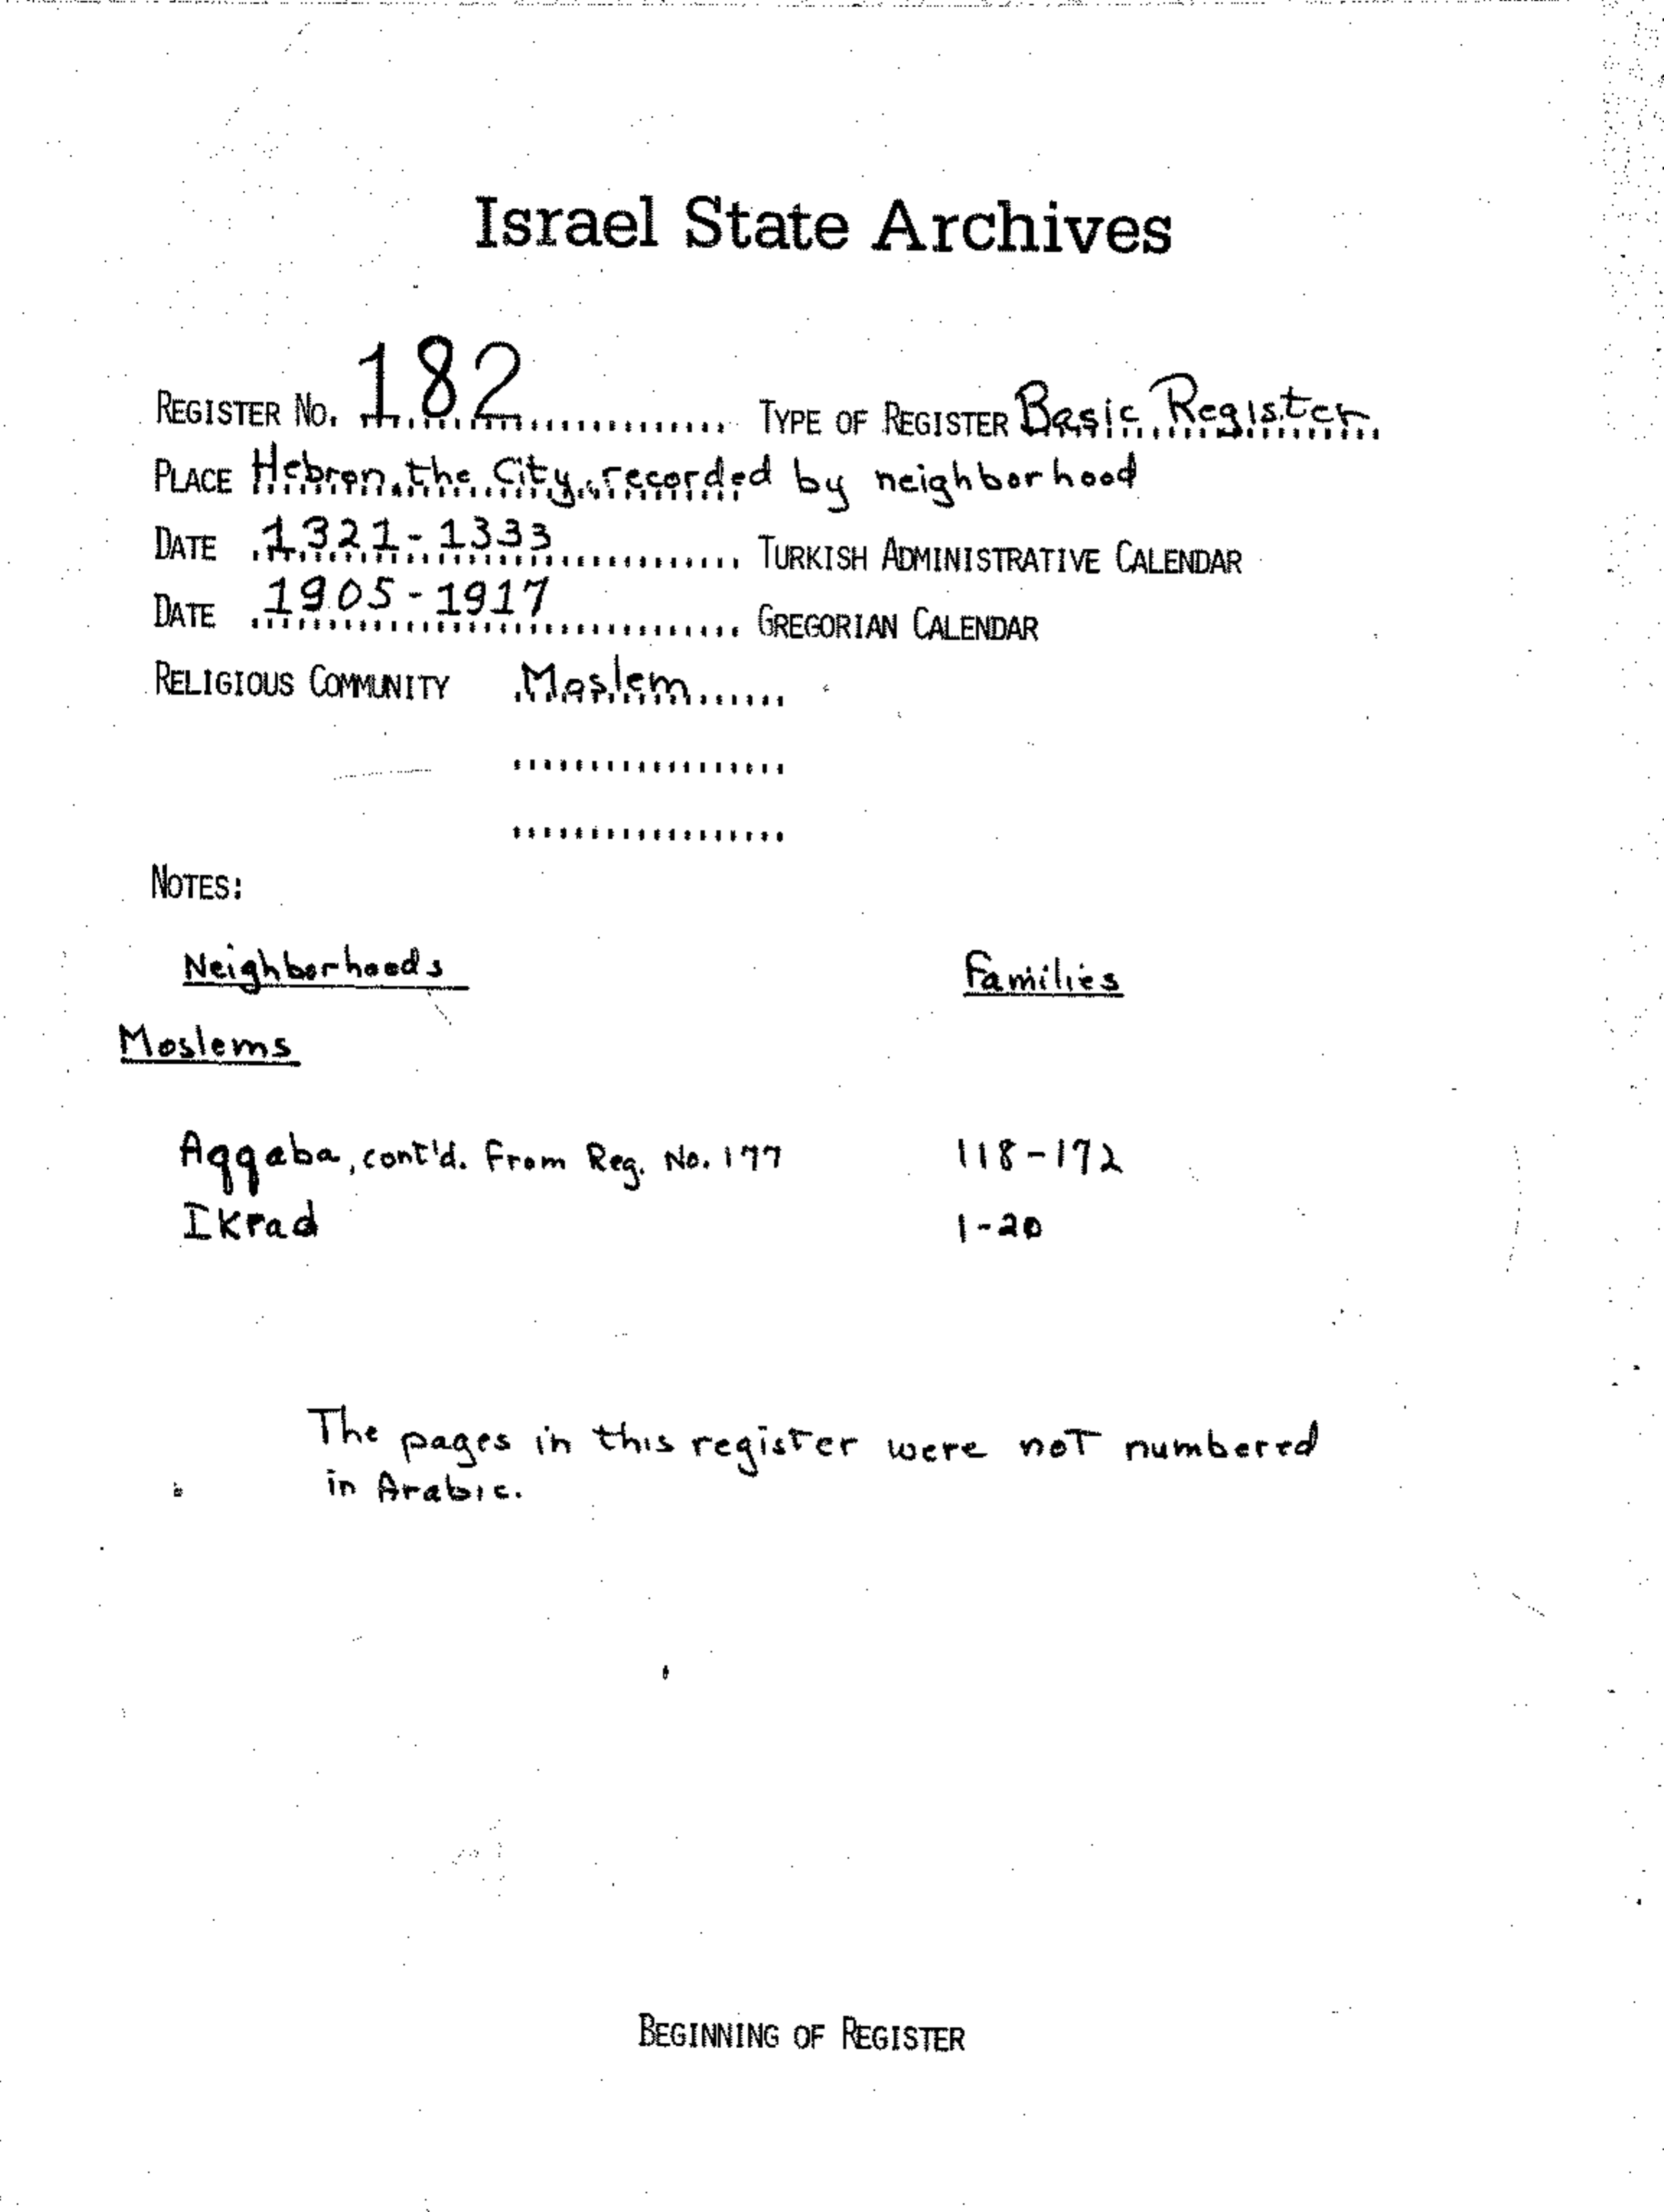 Israel State Archives
REGISTER NO. 182 TYPE OF REGISTER Basic Register
PLACE Hebron, the City, recorded by neighborhood
DATE 1321-1333 TURKISH ADMINISTRATIVE CALENDAR
DATE 1905-1917 GREGORIAN CALENDAR
RELIGIOUS COMMUNITY Moslem
NOTES:
Neighborhoods Families
Moslems
Aqqaba, cont'd. From Reg. No. 177 118-172
Ikrad 1-20
The pages in this register were not numbered
in Arabic.
BEGINNING OF REGISTER